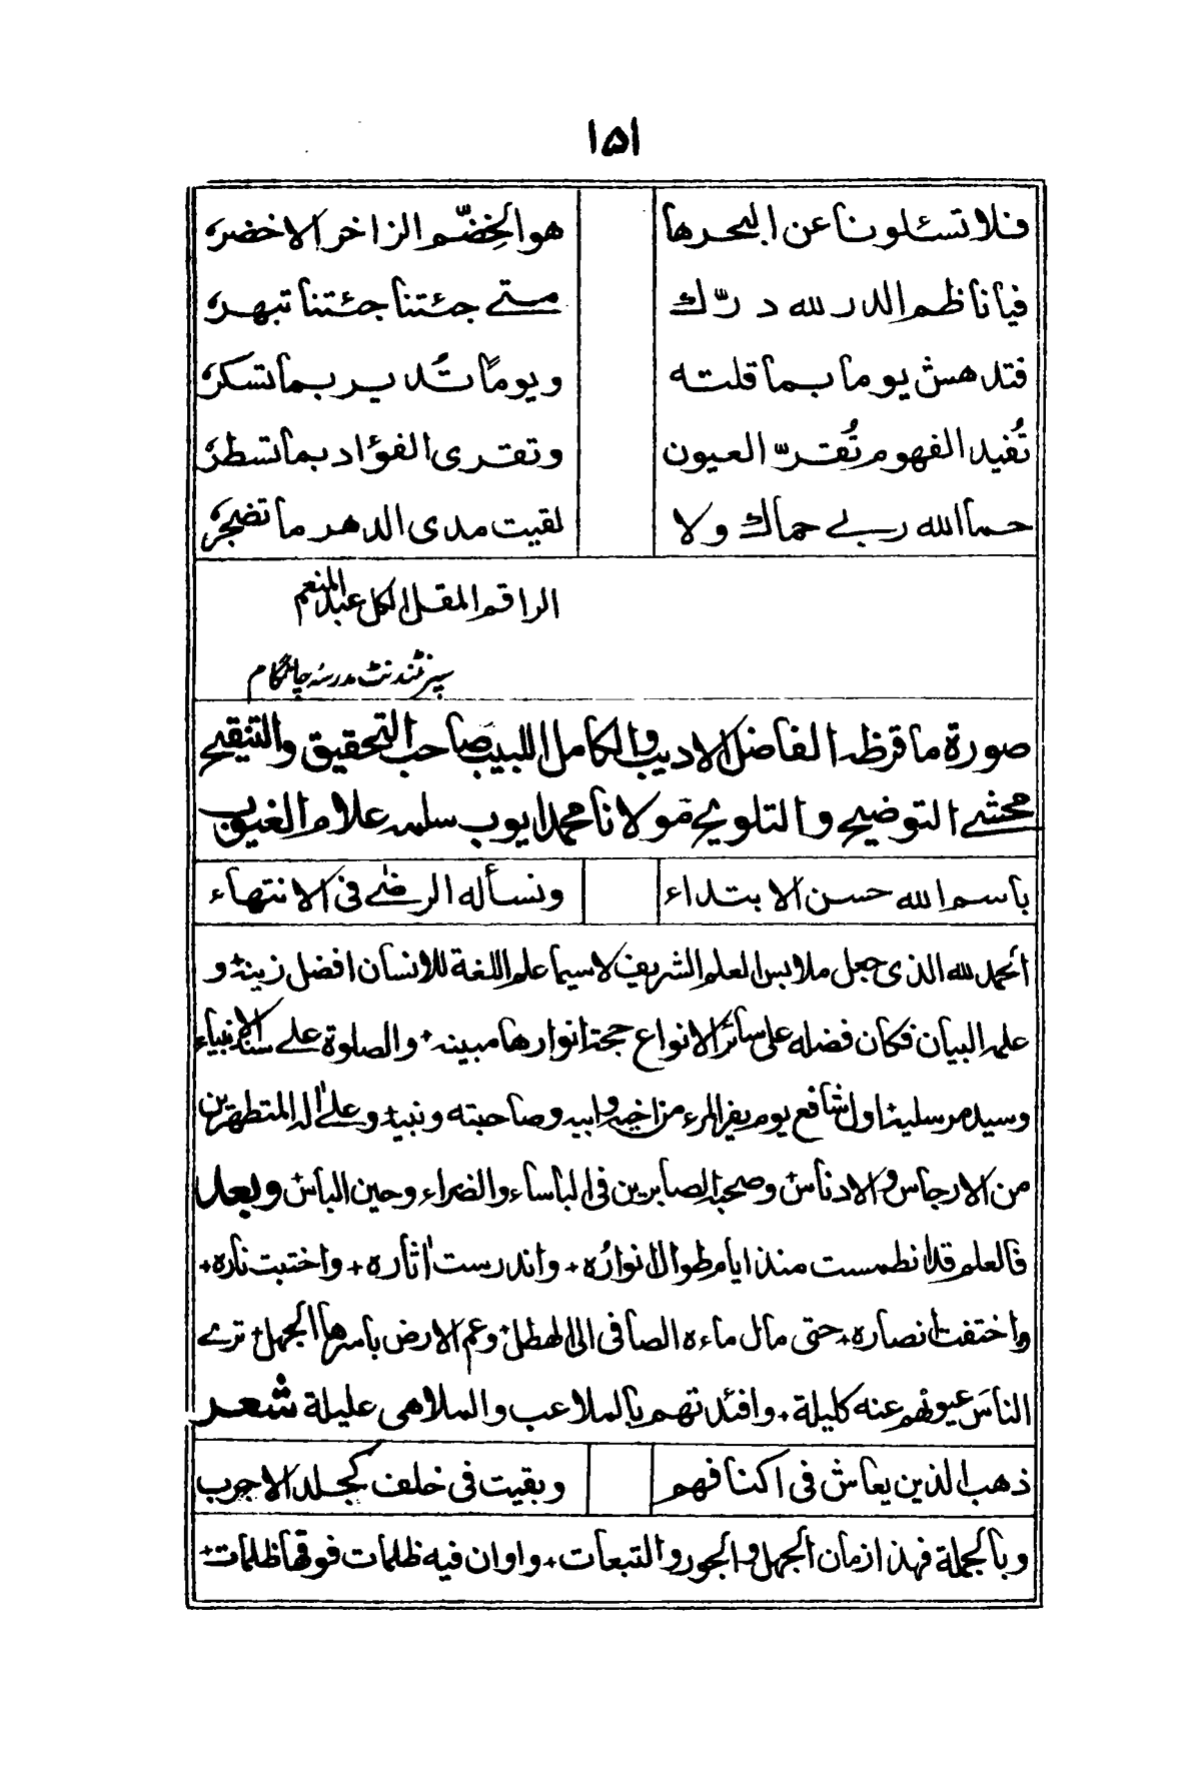 ۱۵۱
فلا تسئلونا عن البحرها هو الخِضَّم الزاخر الاخضرہ
فيا ناظم الدر لله درّك متے جئتنا جئتنا تبهرہ
فتدهش يوما بما قلته ويوماً تُدير بما تسكرہ
تُفيد الفهوم تُقرّ العيون وتقرى الفؤاد بما تسطرہ
حماالله ربے حماك ولا لقيت مدى الدهر ما تضجرہ
الراقم المقل الكل عبد المنعم
سپرنٹنڈنٹ مدرسہ چاٹگام
صورة ما قرظه الفاضل الاديب والكامل اللبيب صاحب التحقيق والتنقيح
محشے التوضيح والتلويح مَولانا محمد ايوب سلمه علام الغيوب
باسم الله حسن الابتداء ونسأله الرضے فى الانتهاء
الحمد لله الذى جعل ملابس العلم الشريف لاسيما علم اللغة للانسان افضل زينة و
علمه البيان فكان فضله على سائر الانواع حجة انوارها مبينه + والصلوة علے سند الانبياء
وسيد مرسلين اول شافع يوم يفر المرء من اخيه وابيه وصاحبته وبنيه وعلےٰ اله المتطهرين
من الارجاس والادناس + وصحبه الصابرين فى الباساء والضراء وحين الباس وبعد
فالعلم قد انطمست منذ ايام طوال انوارُه + واندرست اٰثاره + واختبت ناره +
واختفت انصاره + حتى مال ماءه الصافى الى الهطل + وعم الارض باسرها الجهل + ترے
الناسَ عيونهم عنه كليلة + وافئدتهم بالملاعب والملاهى عليلة شعر
ذهب الذين يعاش فى اكنافهم وبقيت فى خلف كجلد الاجرب
وبالجملة فهذا زمان الجهل والجور والتبعات + واوان فيه ظلمات فوقها ظلمات +